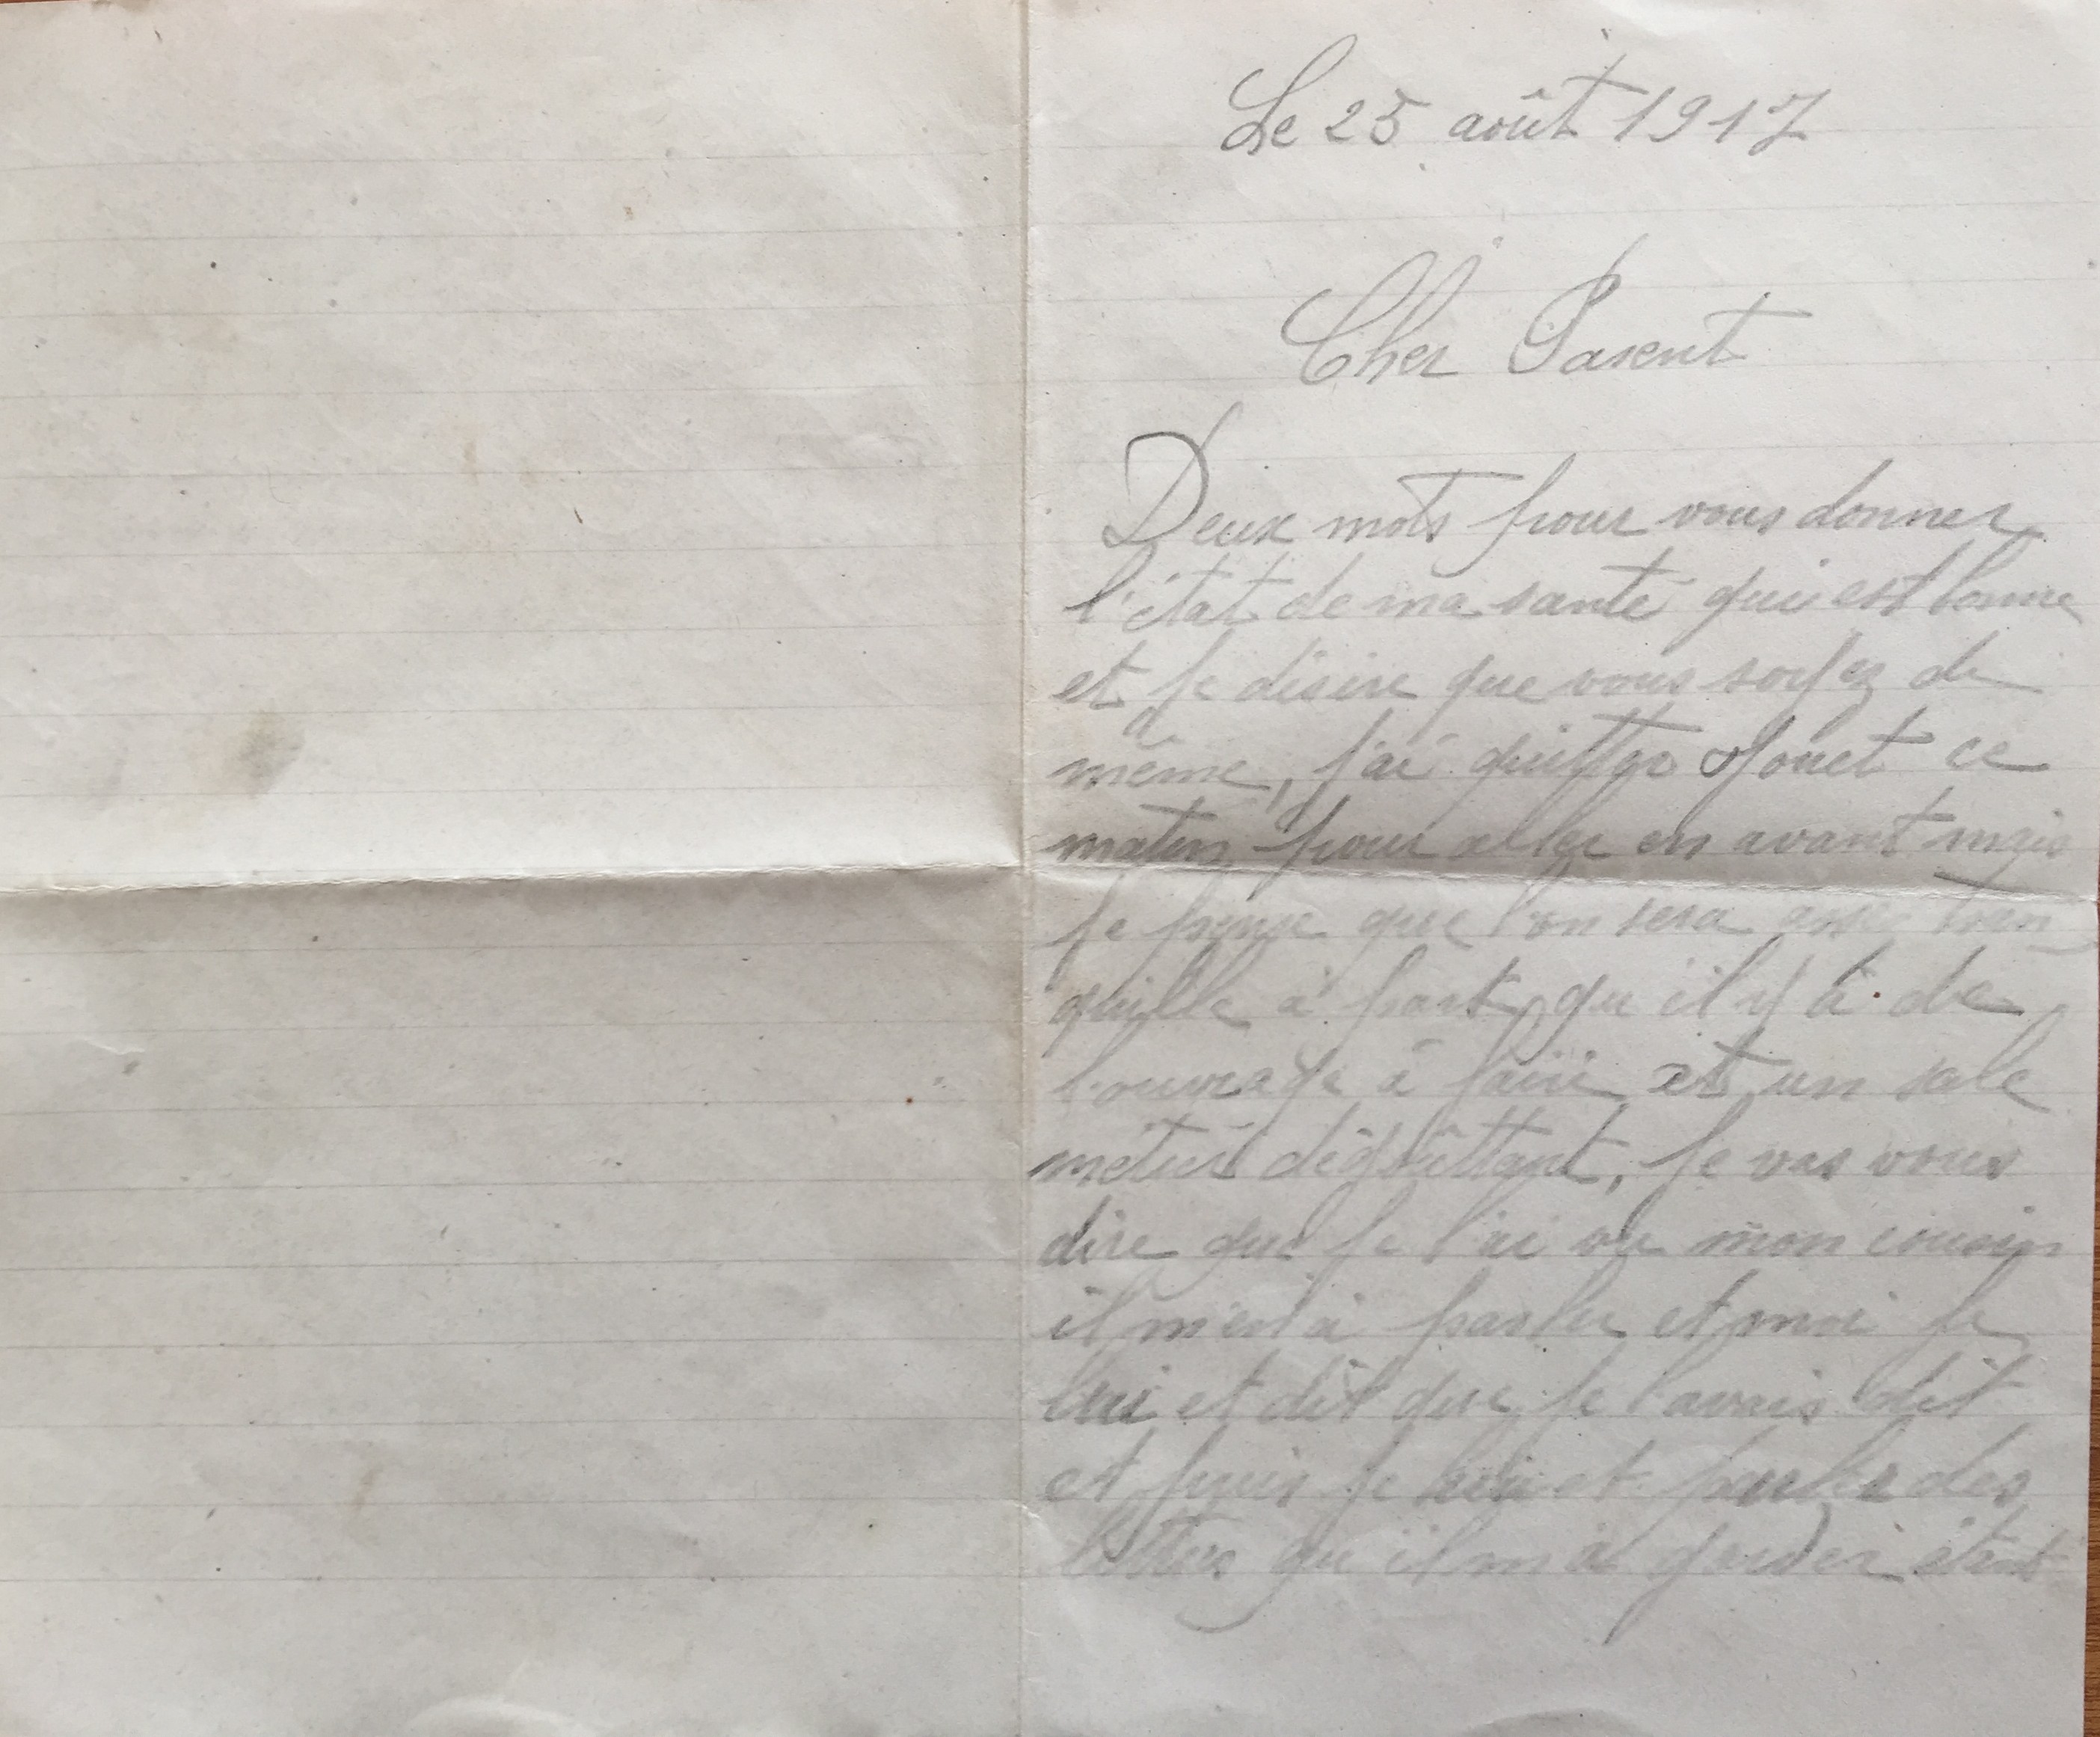 Le 25 août 1917
Cher Parent
Deux mots pour vous donner
l'état de ma santé qui est bonne
et je désire que vous soyez de
même, j'ai quitter Jouet ce
matin pour aller en avant mais
je pense que l'on sera asse tran
quille à part qu'il y à de
l'ouvrage à faire et un sale
métier dégoûttant, je vas vous
dire que je l'ai vu mon cousin
il m'en à parler et moi je
lui et dit que je l'avais dit
et puis je lui et parler des
lettres qu'il m'a garder étant